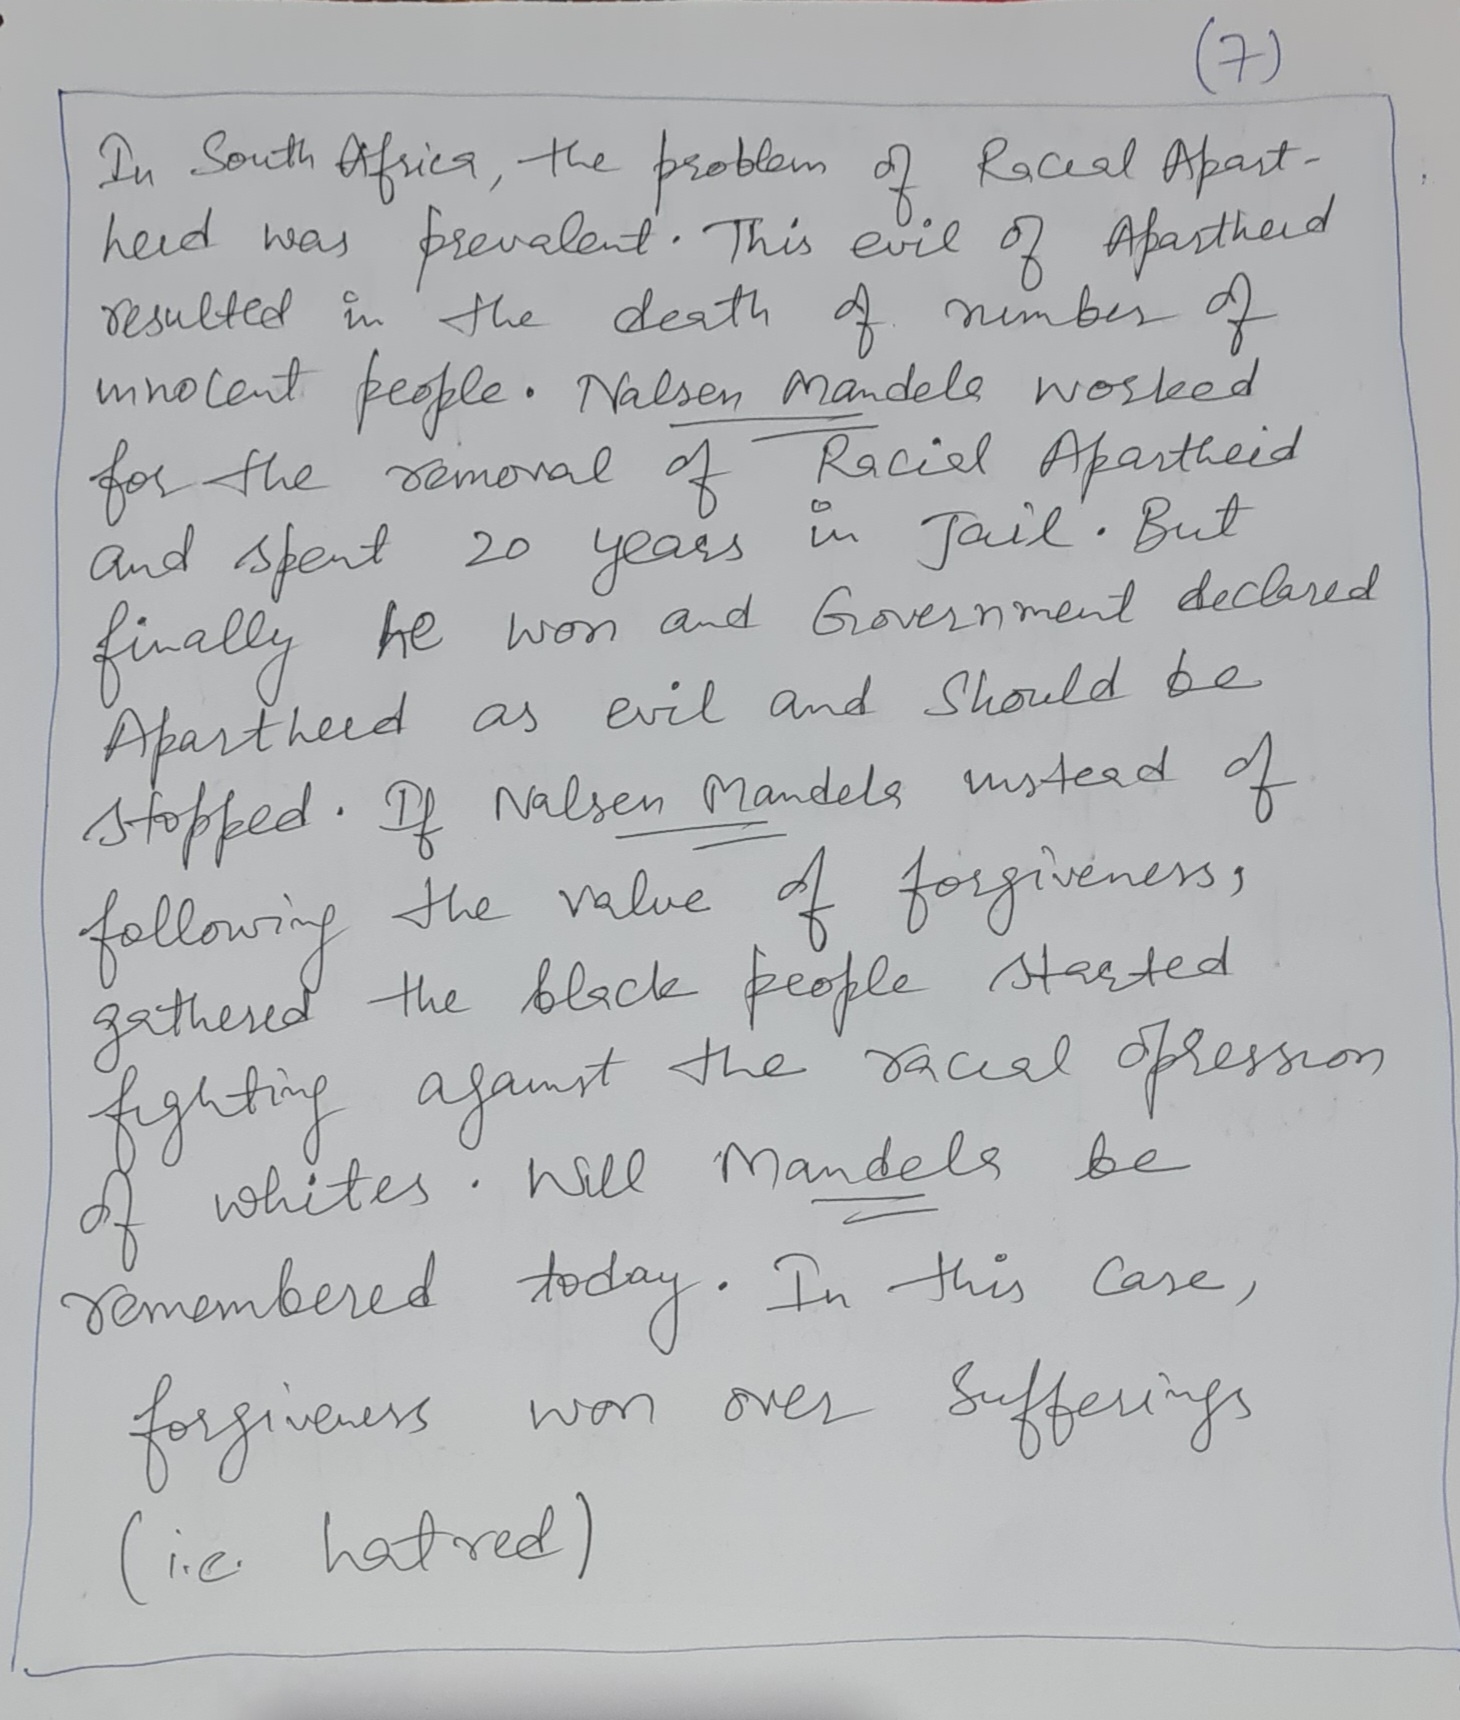 (7)
In South Africa, the problem of Racial Apart-
heid was prevalent. This evil of Apartheid
resulted in the death of number of
innocent people. Nalsen Mandela worked
for the removal of Racial Apartheid
and spent 20 years in Jail. But
finally he won and Government declared
Apartheid as evil and Should be
stopped. If Nalsen Mandela instead of
following the value of forgiveness,
gathered the black people started
fighting against the racial opression
of whites. Will Mandela be
remembered today. In this case,
forgiveness won over Sufferings
(i.e. hatred)